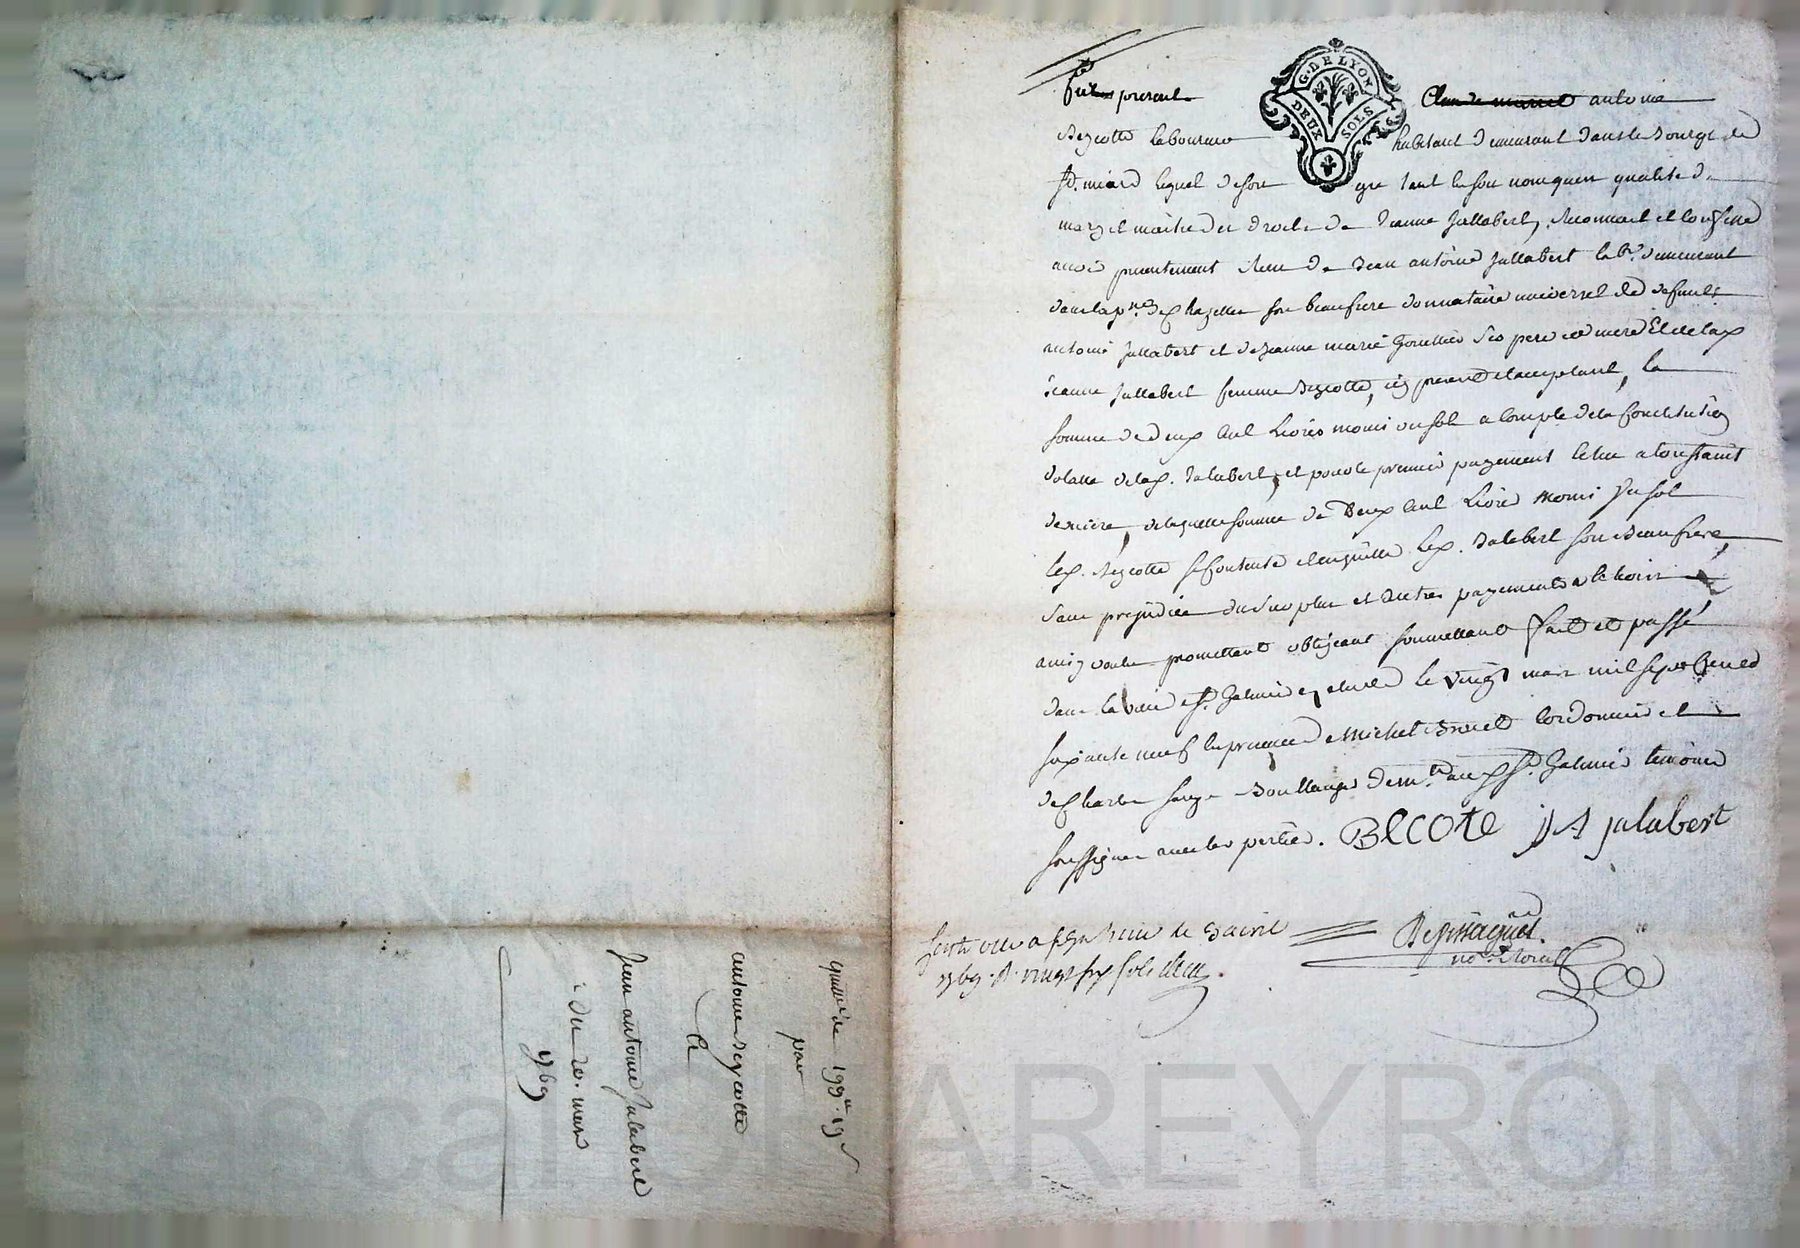 G. DE LYON
DEUX SOLS
fut present antoine
Bezcotte laboureur habitant demeurant dans le Bourg de
St. miard lequel de son gre tant en son nom qu'en qualite de
mary et maitre des droits de Jeanne Jallabert, Reconnait et confesse
avoir presentement Receu de Jean antoine Jallabert lab.r demeurant
son beaufrere donnataire universel de defunts
antoine Jallabert et de Jeanne marie ses pere et mere Et de lad
jeanne Jallabert femme Bezcotte, icy present et acceptant, la
somme de deux cent Livres moins un sol a compte de la constitution
dotalle de lad. Jalabert, et pour le premier payement echu a
derniere, de laquelle somme de Deux cent Livres Moins Un sol
led. Bezcotte se contente et en quitte led. Jalabert son Beaufrere,
sans prejudice du surplus et autres payements a echoir
ainsy voulu promettant obligeant soumettant fait et passé
dans la ville St. Galmier etude le vingt mars mil sept Cent
soixante neuf en presence de Michel Bruel cordonnier et
de Charles Boullanger dem.t aud St. Galmier temoins
soussignes avec les parties. BECOTE JA jalabert
Cont. a St Galmier le 3 avril
1769. R. vingt six sols
no.re Roial
quitt.ce de 199.ll 19 s
par
antoine Bezcotte
a
Jean antoine Jalabert
du 20. mars
1769
ascal CHAREYRON